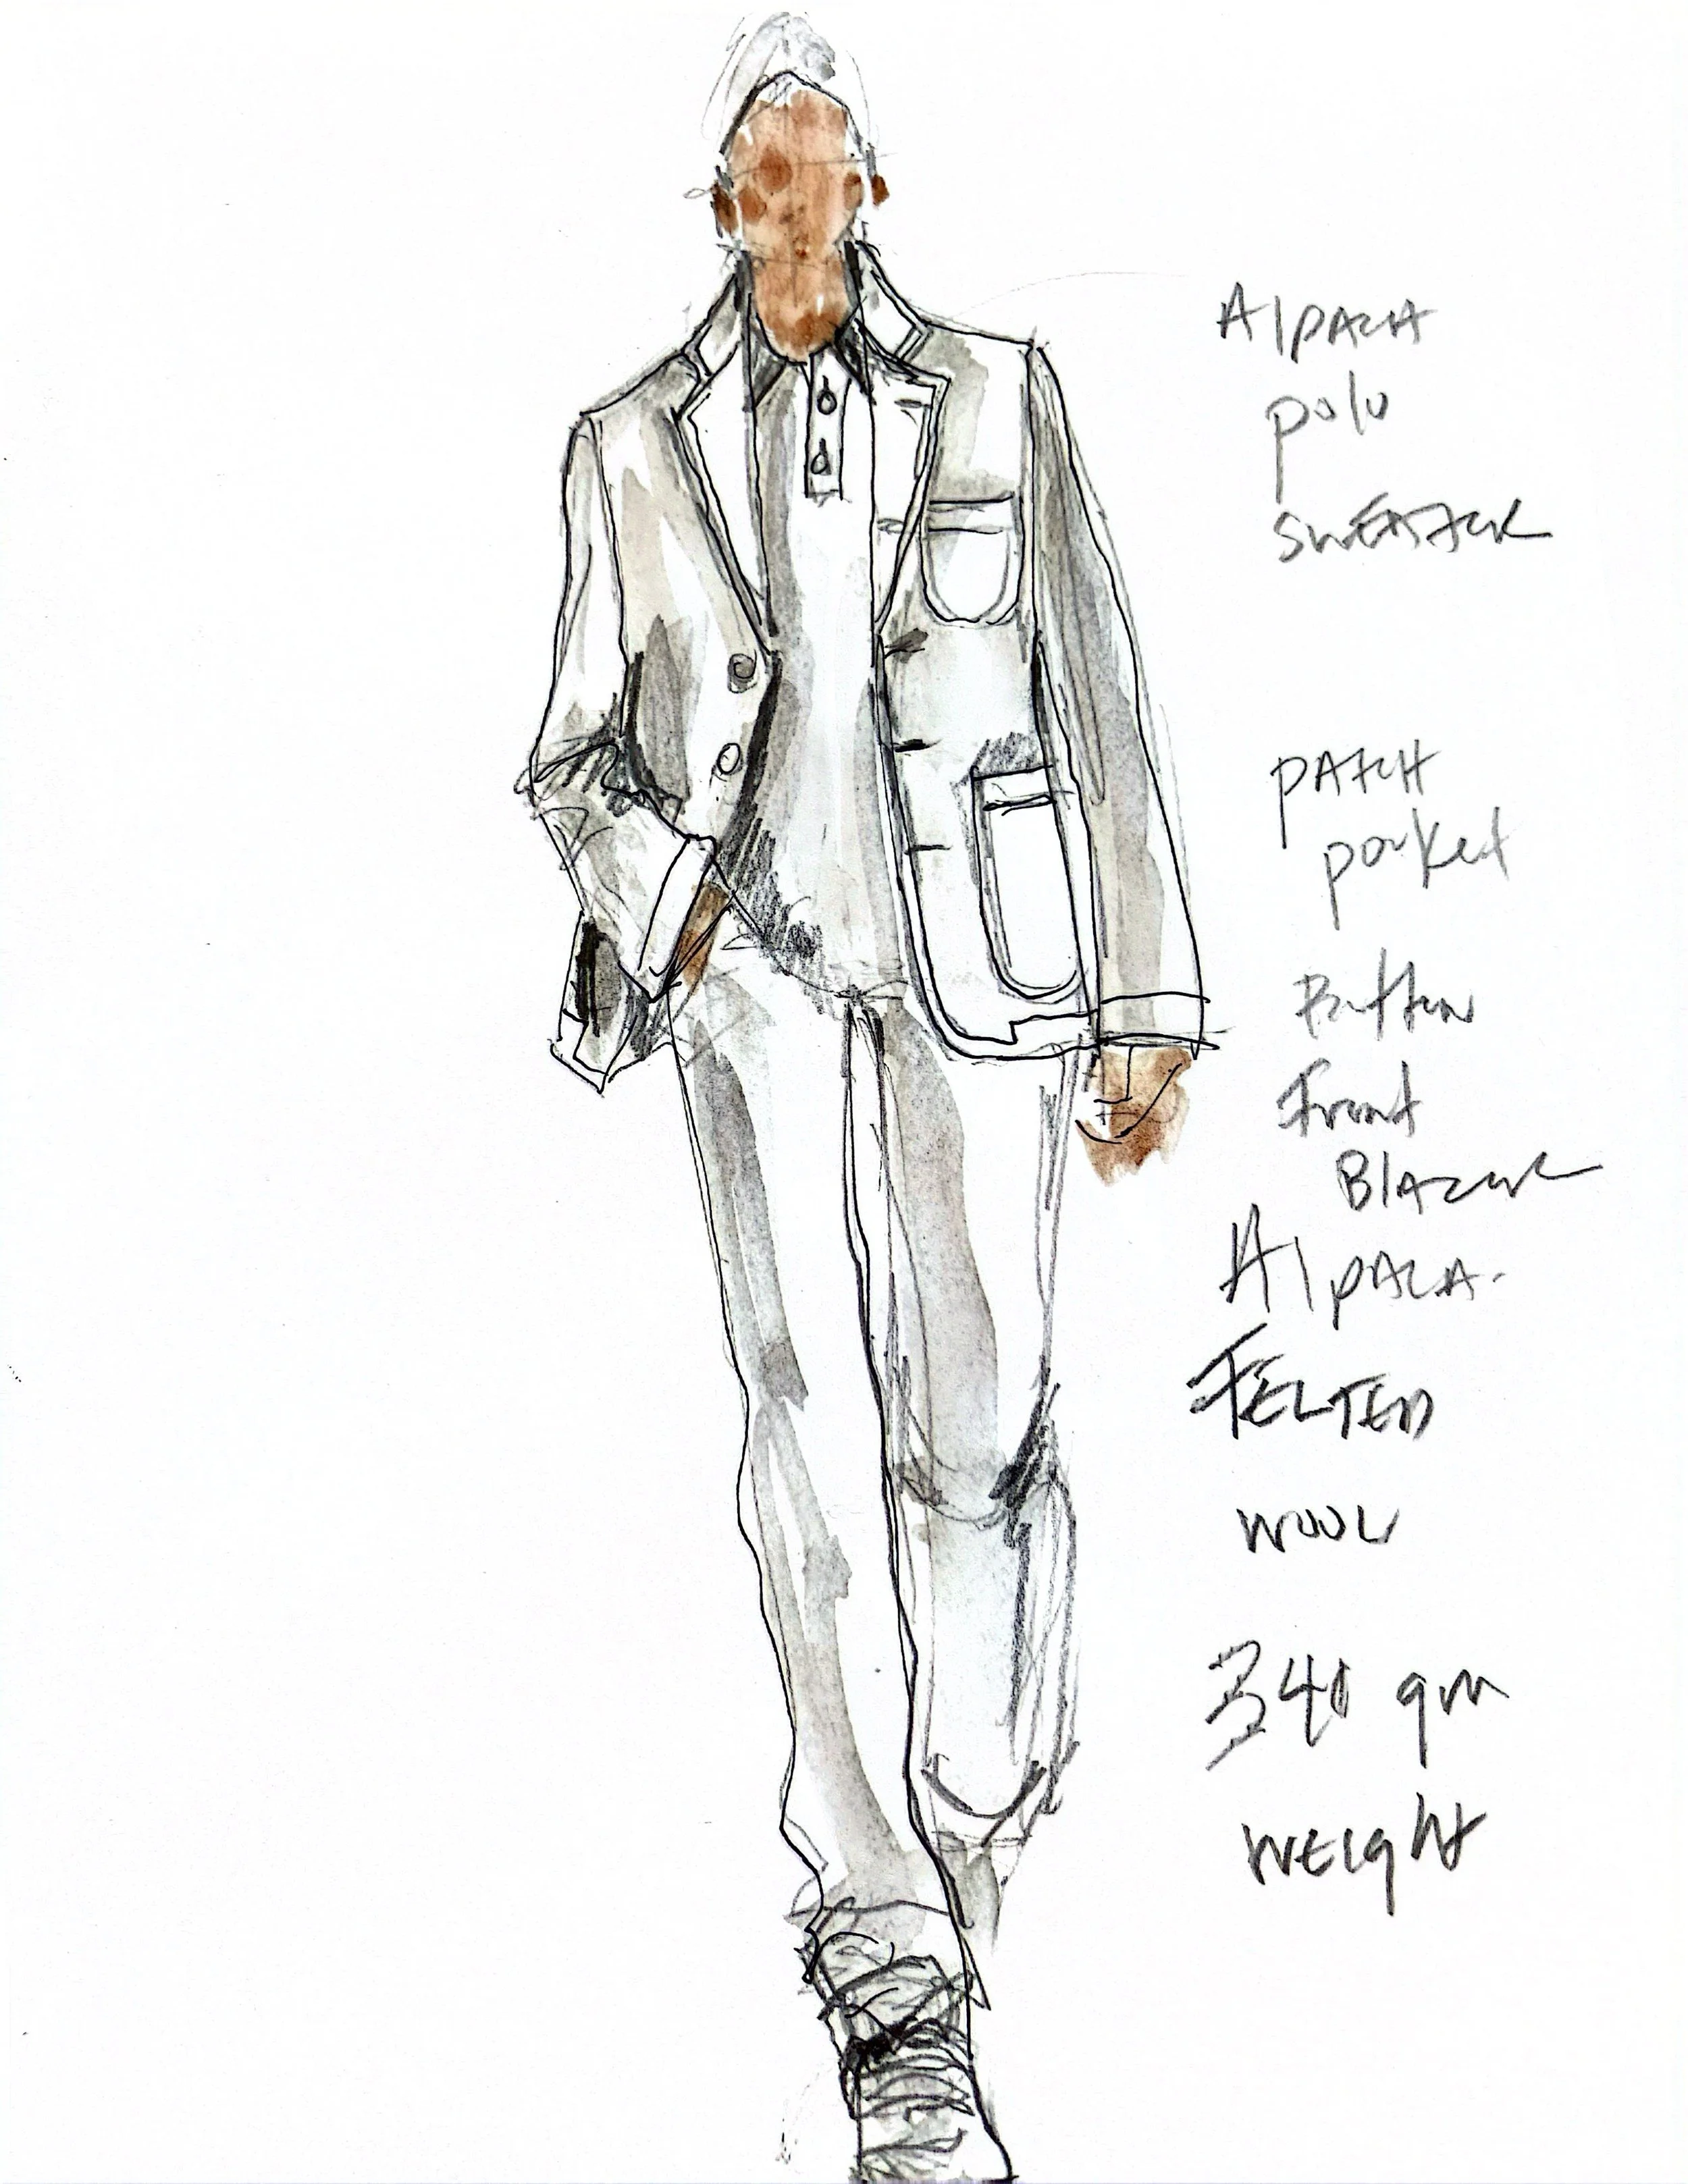 Alpaca
polo
sweater
patch
pocket
Button
Front
Blazer
Alpaca.
FELTED
WOOL
340 gm
weight